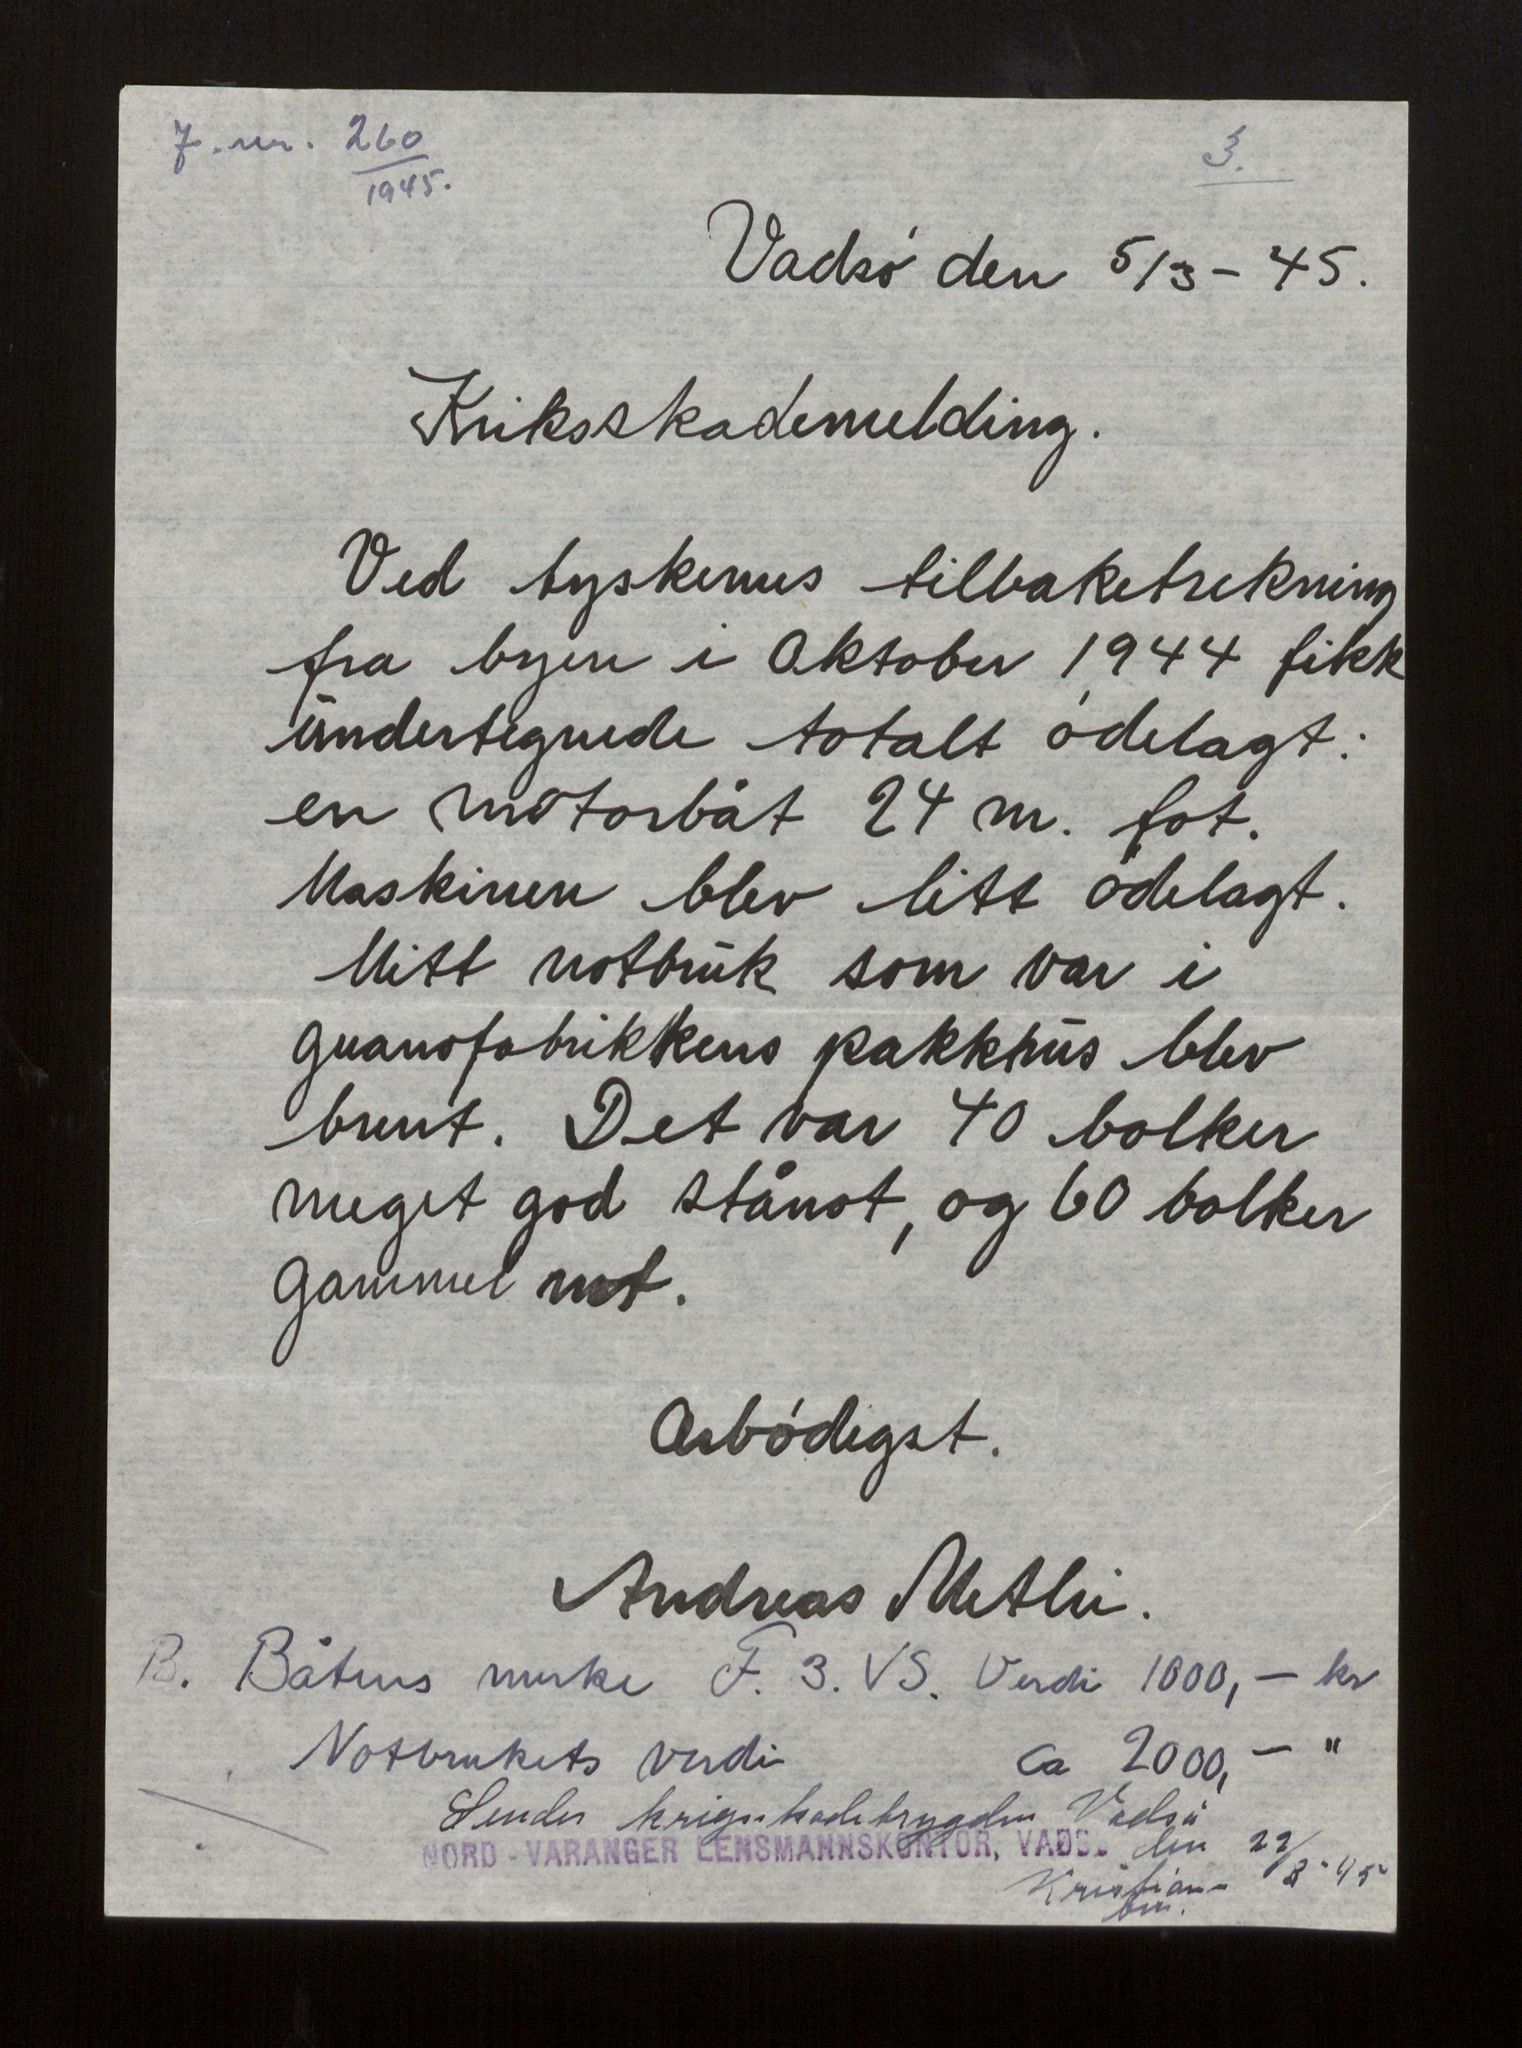 J. nr. 260
1945.
3.
Vadsó den 5/3 - 45.
Kriksskademelding.
Ved tyskernes tilbaketrekning
fra byen i Oktober 1944 fikk
undertegnede totalt ódelagt:
en motorbåt 24 m. fot.
Maskinen blev litt ódelagt.
Mitt notbruk som var i
guanofabrikkens pakkhus blev
brent. Det var 40 bolker
meget god stånot, og 60 bolker
gammel not.
Arbódigst.
Andreas Methi.
B. Båtens merke F. 3. VS. Verdi 1000,- kr
Notbrukets verdi ca 2000,- "
Sendes krigsskadetrygden Vadsö
NORD-VARANGER LENSMANNSKONTOR, VADS. den 22/3-45